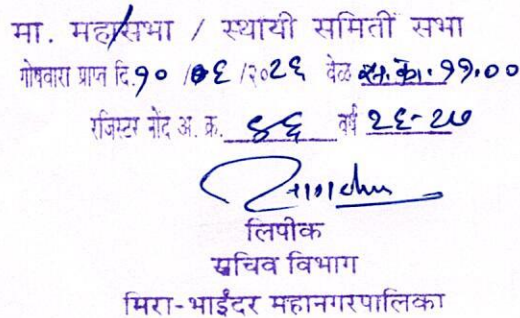 मा. महासभा / स्थायी समिती सभा
गोषवारा प्राप्त दि.१० /०६ /२०२६ वेळ स.का. ११.००
रजिस्टर नोंद अ. क्र. ४६ वर्ष २६-२७
लिपीक
सचिव विभाग
मिरा-भाईंदर महानगरपालिका